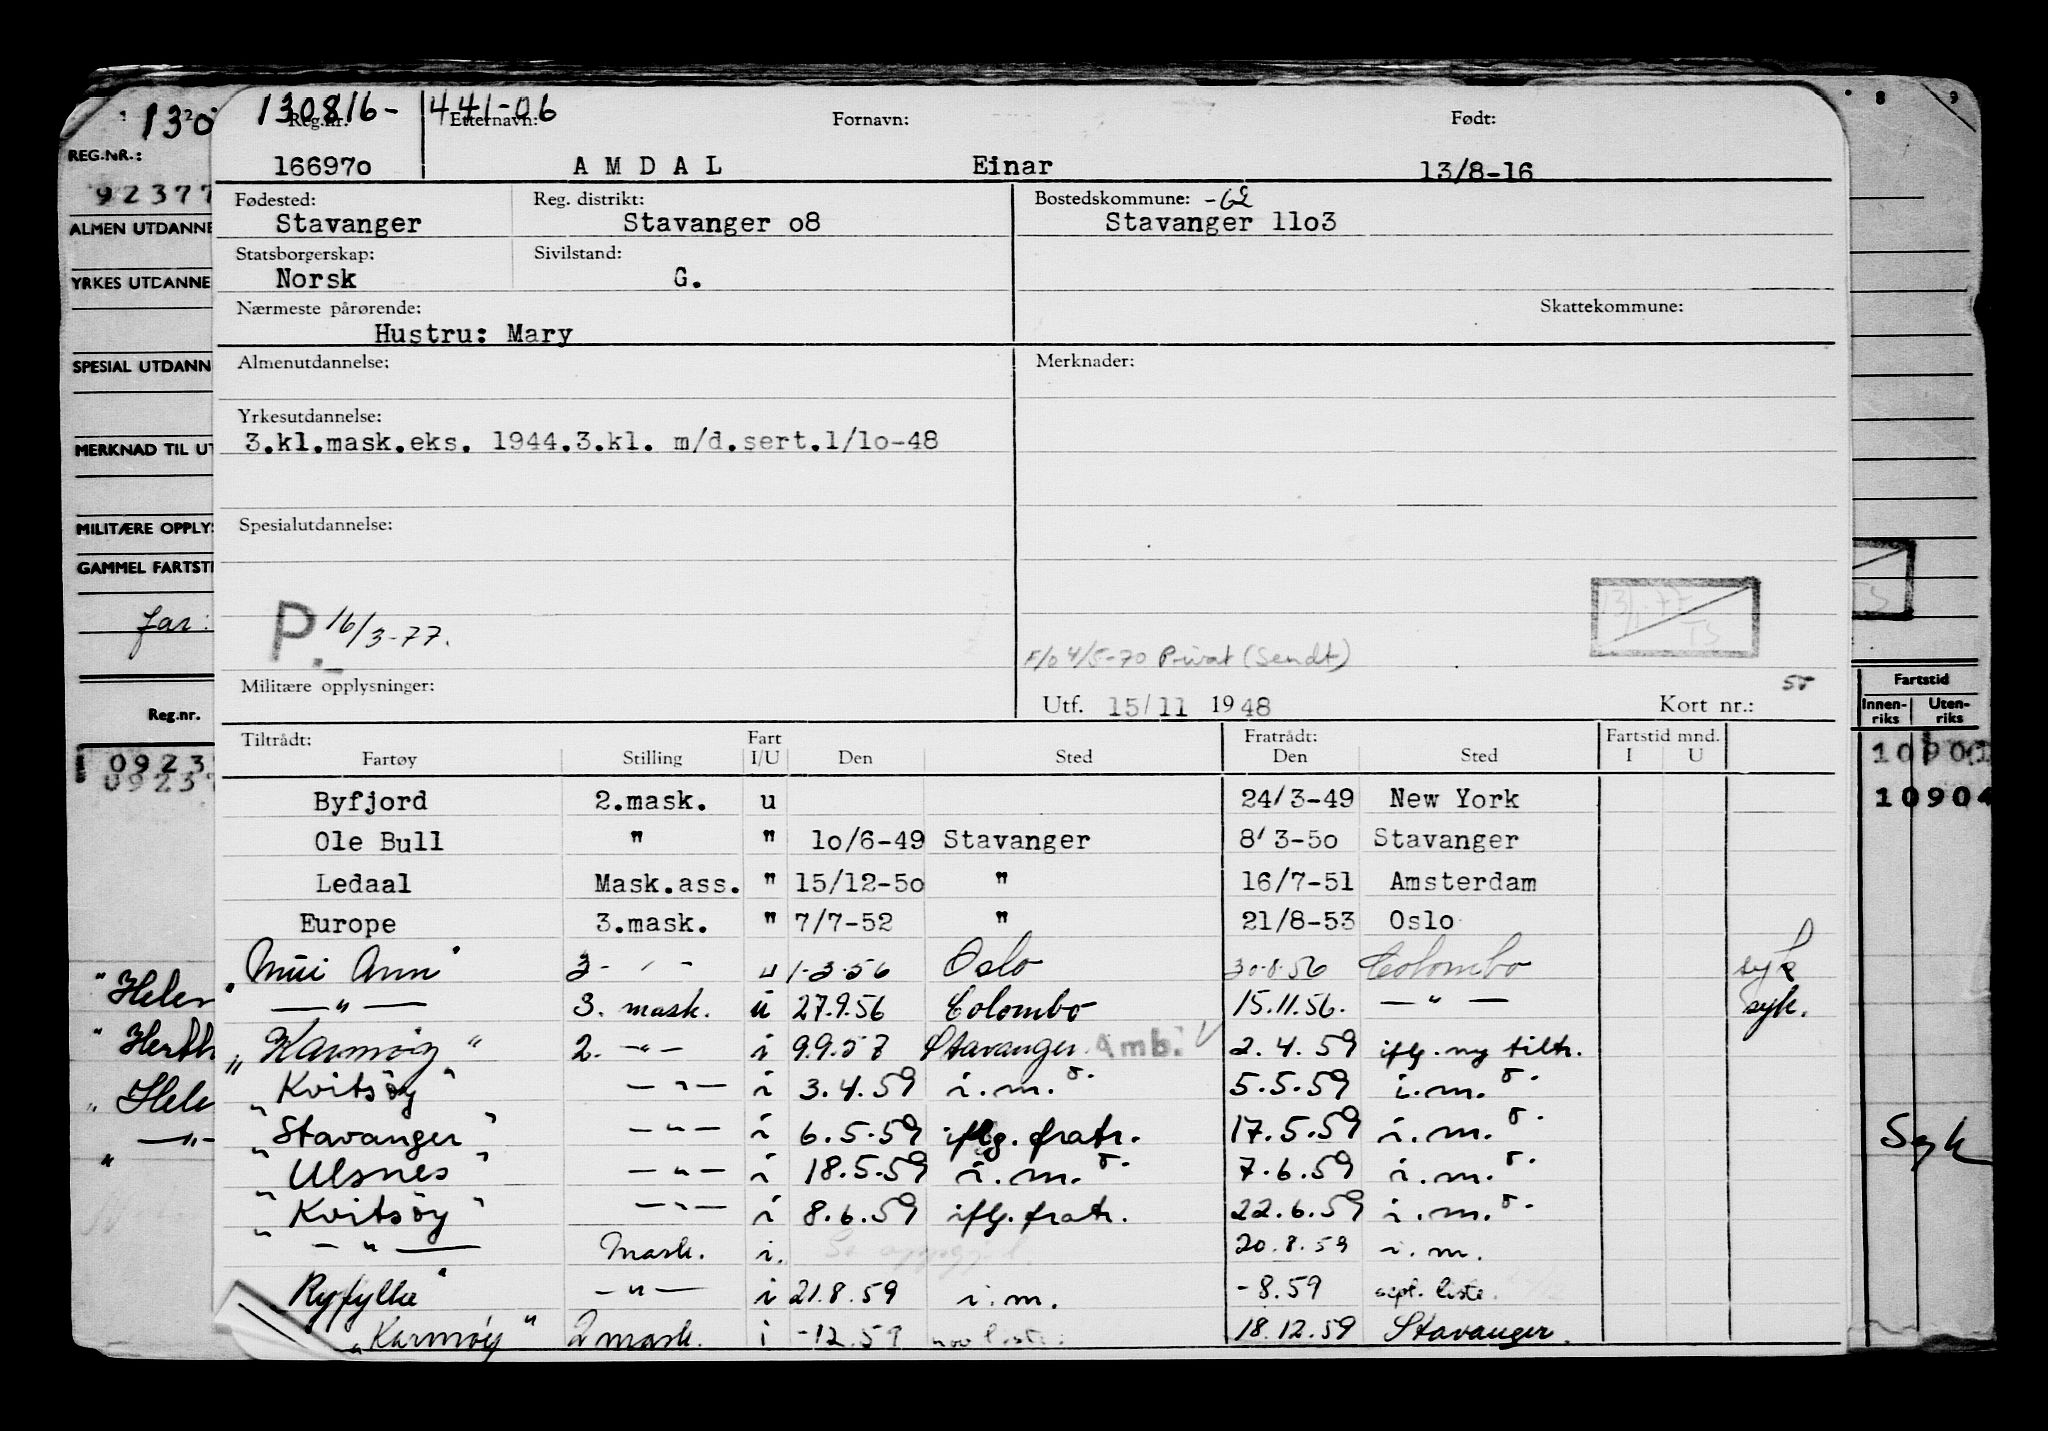 130816- 441-06
Reg.nr. Etternavn: Fornavn: Født:
16697o AMDAL Einar 13/8-16
Fødested: Reg. distrikt: Bostedskommune: -62
Stavanger Stavanger o8 Stavanger 11o3
Statsborgerskap: Sivilstand:
Norsk G.
Nærmeste pårørende: Skattekommune:
Hustru: Mary
Almenutdannelse: Merknader:
Yrkesutdannelse:
3.kl.mask.eks. 1944.3.kl. m/d.sert.1/1o-48
Spesialutdannelse:
P. 16/3-77.
F/o 4/5-70 Privat (Sendt)
Militære opplysninger:
Utf. 15/11 1948 Kort nr.:
Tiltrådt: Fart Fratrådt: Fartstid mnd.
Fartøy Stilling I/U Den Sted Den Sted I U
Byfjord 2.mask. u 24/3-49 New York
Ole Bull " " 1o/6-49 Stavanger 8/3-5o Stavanger
Ledaal Mask.ass. " 15/12-5o " 16/7-51 Amsterdam
Europe 3.mask. " 7/7-52 " 21/8-53 Oslo
"Mui Ann" 3- " - u 1-3-56 Oslo 30-8-56 Colombo syk
— " — 3. mask. u 27.9.56 Colombo 15.11.56. — " — syk.
"Karmøy" 2. — " — i 9.9.57 Stavanger Amb. V 2.4.59 iflg. ny tiltr.
"Kvitsøy" — " — i 3.4.59 i.m. 5.5.59 i.m.
"Stavanger" — " — i 6.5.59 iflg. fratr. 17.5.59 i.m.
"Ulsnes" — " — i 18.5.59 i.m. 7.6.59 i.m.
"Kvitsøy" — " — i 8.6.59 iflg. fratr. 22.6.59 i.m.
— " — Mask. i. 20.8.59 i.m.
Ryfylke" — " — i 21.8.59 i.m. -8.59 sept. liste.
"Karmøy" 2 mask. i -12.59 nov liste. 18.12.59 Stavanger.
REG.NR.:
92377
ALMEN UTDANNE
YRKES UTDANNE
SPESIAL UTDANN
MERKNAD TIL UT
MILITÆRE OPPLYS
GAMMEL FARTSTI
far:
Reg.nr.
0923
"Helen
"Herth
"Hele
— " —
8 9
Fartstid
Innen-riks Uten-riks
10904
Syk